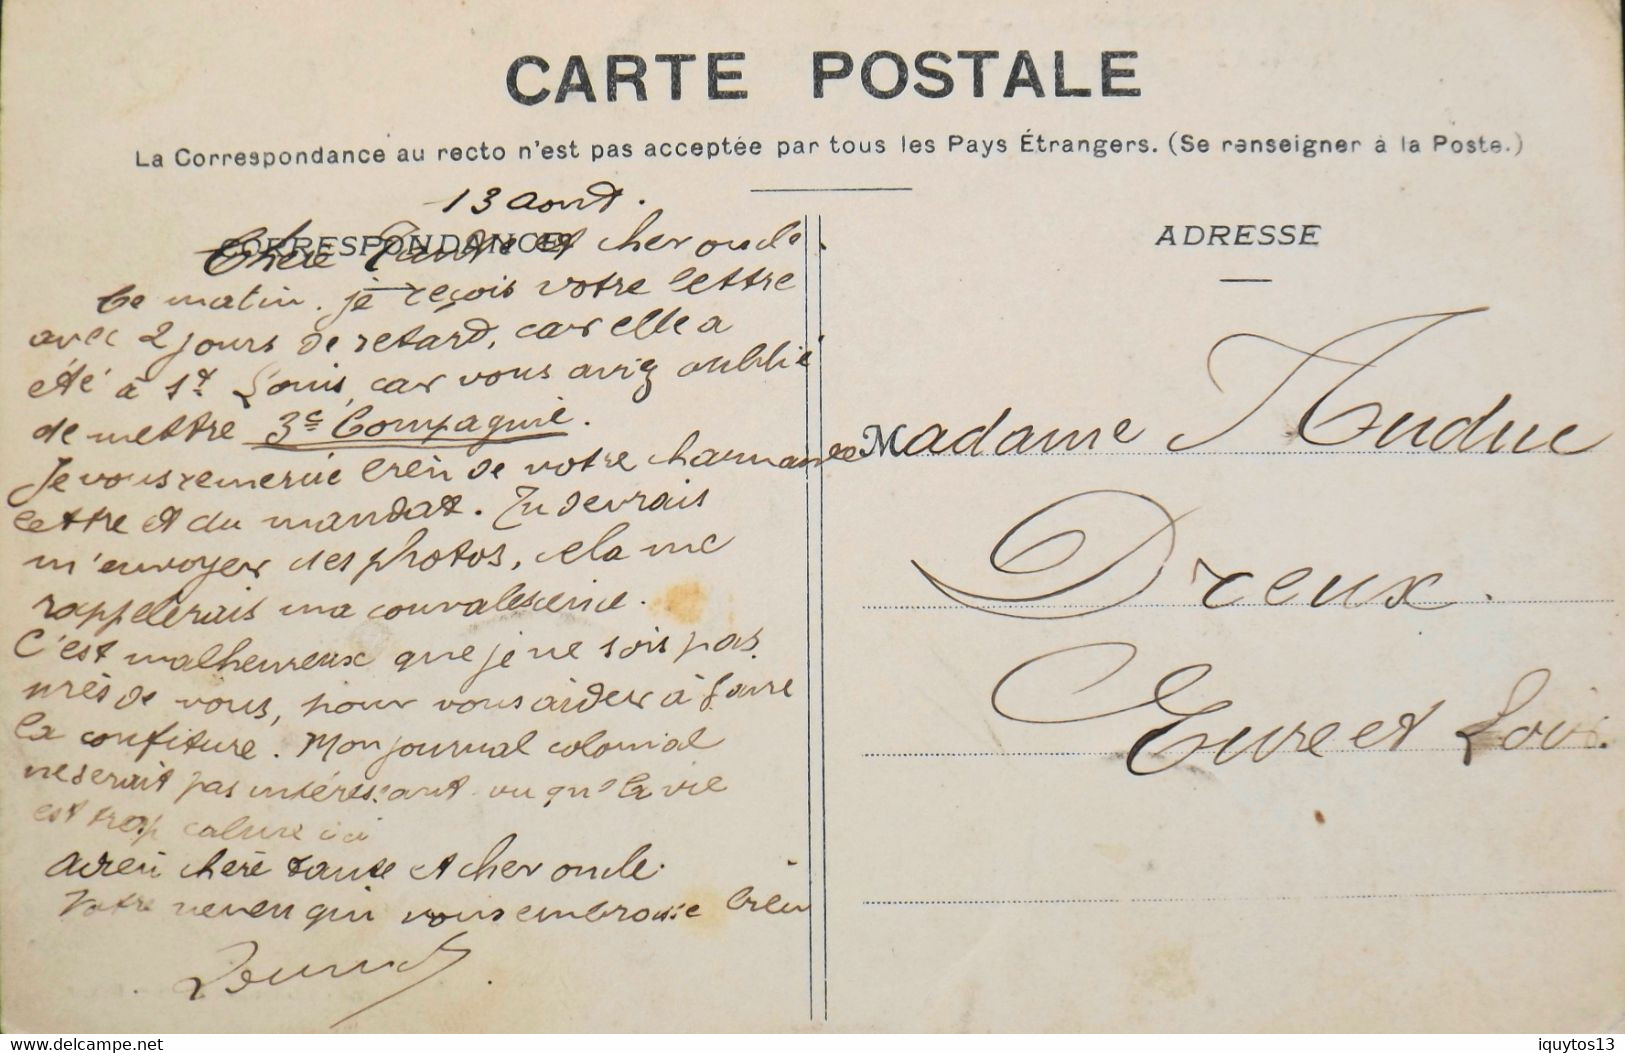 CARTE POSTALE
La Correspondance au recto n'est pas acceptée par tous les Pays Étrangers. (Se renseigner à la Poste.)
13 Aout.
CORRESPONDANCE
Chère Tante et cher oncle.
Ce matin. je reçois votre lettre
avec 2 jours de retard, car elle a
été à St Louis, car vous aviez oublié
de mettre 3e Compagnie.
Je vous remercie bien de votre charmante
lettre et du mandat. Tu devrais
m'envoyer des photos, cela me
rappelerais ma convalescence.
C'est malheureux que je ne sois pas
près de vous, pour vous aider à faire
la confiture. Mon journal colonial
ne serait pas intéressant vu que la vie
est trop calme ici
adieu chère tante et cher oncle.
Votre neveu qui vous embrasse bien
ADRESSE
Madame Auduc
Dreux.
Eure et Loir.
delcampe.net
iquytos13